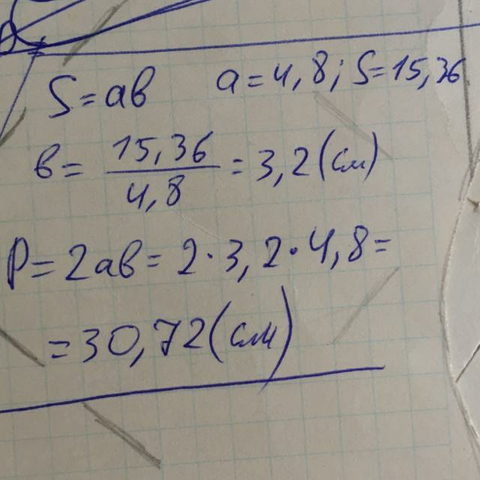 S = ав   а = 4,8; S = 15,36
в = 15,36 / 4,8 = 3,2 (см)
P = 2ав = 2 · 3,2 · 4,8 =
= 30,72 (см)